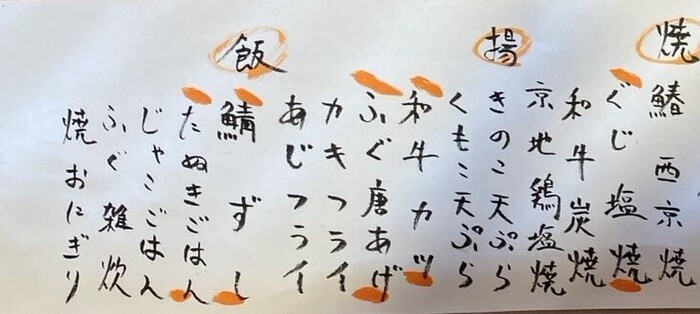 焼
鰆西京焼
ぐじ塩焼
和牛炭焼
京地鶏塩焼
揚
きのこ天ぷら
くもこ天ぷら
和牛カツ
ふぐ唐あげ
カキフライ
あじフライ
飯
鯖ずし
たぬきごはん
じゃこごはん
ふぐ雑炊
焼おにぎり